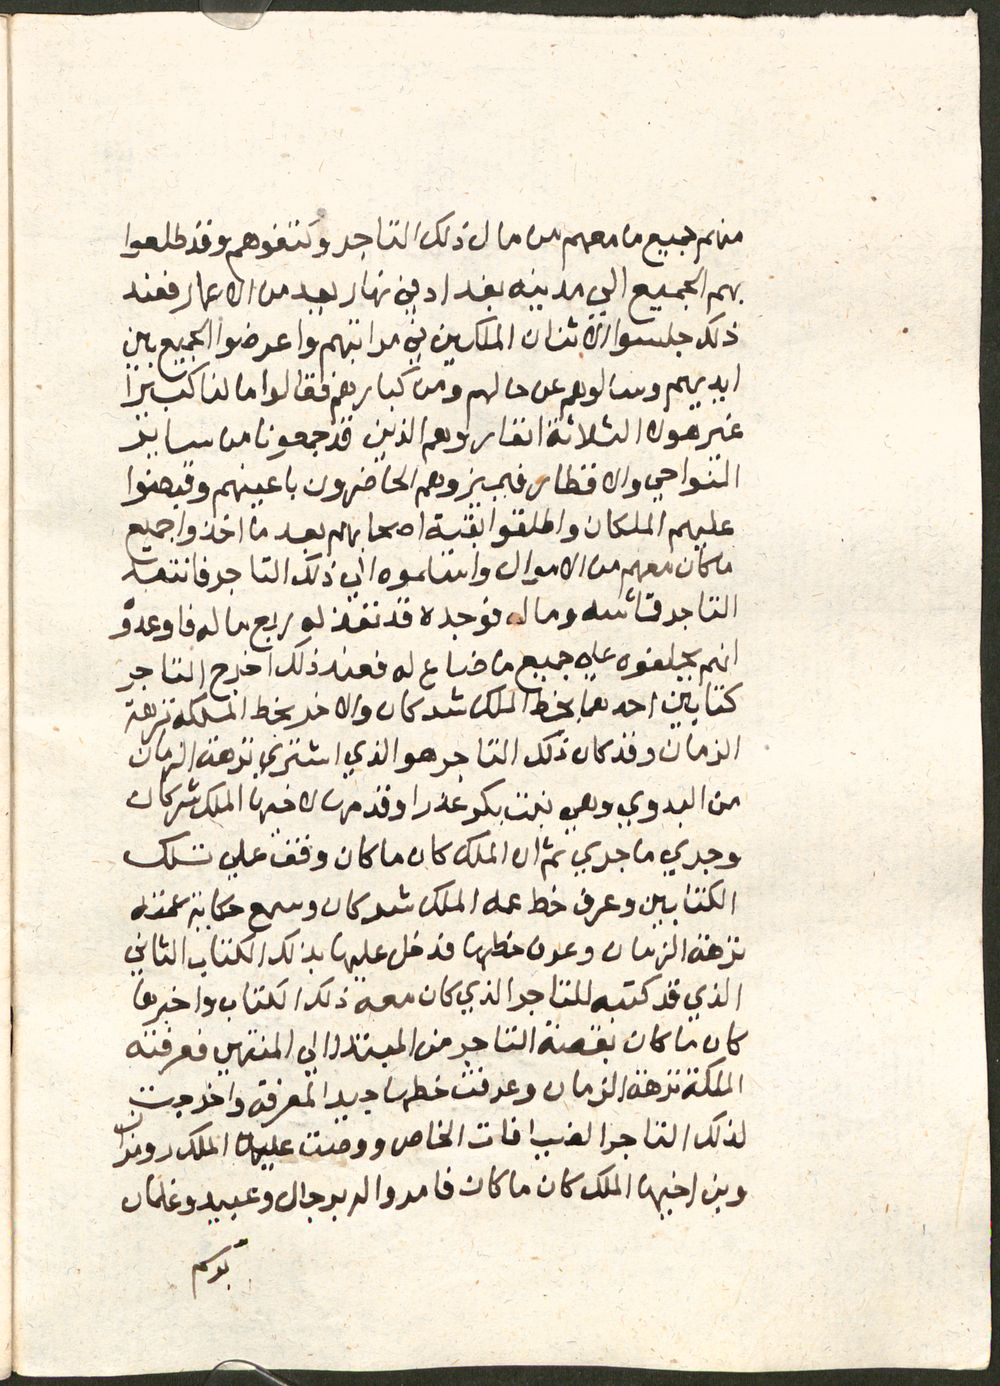 منهم جميع ما معهم من مال ذلك التاجر وكتفوهم وقد طلعوا
بهم الجميع الي مدينه بغداد في نهار يعد من الاعمار فعند
ذلك جلسوا الاثنان الملكين في مراتبهم واعرضوا الجميع بين
ايديهم وسالوهم عن حالهم ومن كبارهم فقالوا ما لنا كبيرا
غير هولا الثلاثة انفار وهم الذين قد جمعونا من ساير
النواحي والاقطار فميزوهم الحاضرون باعينهم وقبضوا
عليهم الملكان واطلقوا بقية اصحابهم بعد ما اخذوا جميع
ما كان معهم من الاموال وسلموه الي ذلك التاجر فانتقد
التاجر قماشه وماله فوجده قد نفذ له ربع ماله فاوعدوه
انهم يخلفوه عليه جميع ما ضاع له فعند ذلك اخرج التاجر
كتابين احدهما بخط الملك شركان والاخر بخط الملكة نزهة
الزمان وقد كان ذلك التاجر هو الذي اشتري نزهة الزمان
من البدوي وهي بنت بكر عذرا وقدمها لاخيها الملك شركان
وجري ما جري ثم ان الملك كان ما كان وقف علي تلك
الكتابين وعرف خط عمه الملك شركان وسمع حكاية عمته
نزهة الزمان وعرف خطها فدخل عليها بذلك الكتاب الثاني
الذي قد كتبه للتاجر الذي كان معه ذلك الكتاب واخبرها
كان ما كان بقصة التاجر من المبتدا الي المنتهي فعرفته
الملكة نزهة الزمان وعرفت خطها جيد المعرفة واخرجت
لذلك التاجر الضيافات الخاص ووصت عليه الملك رومزان
وبن اخيها الملك كان ما كان فامروا له برجال وعبيد وغلمان